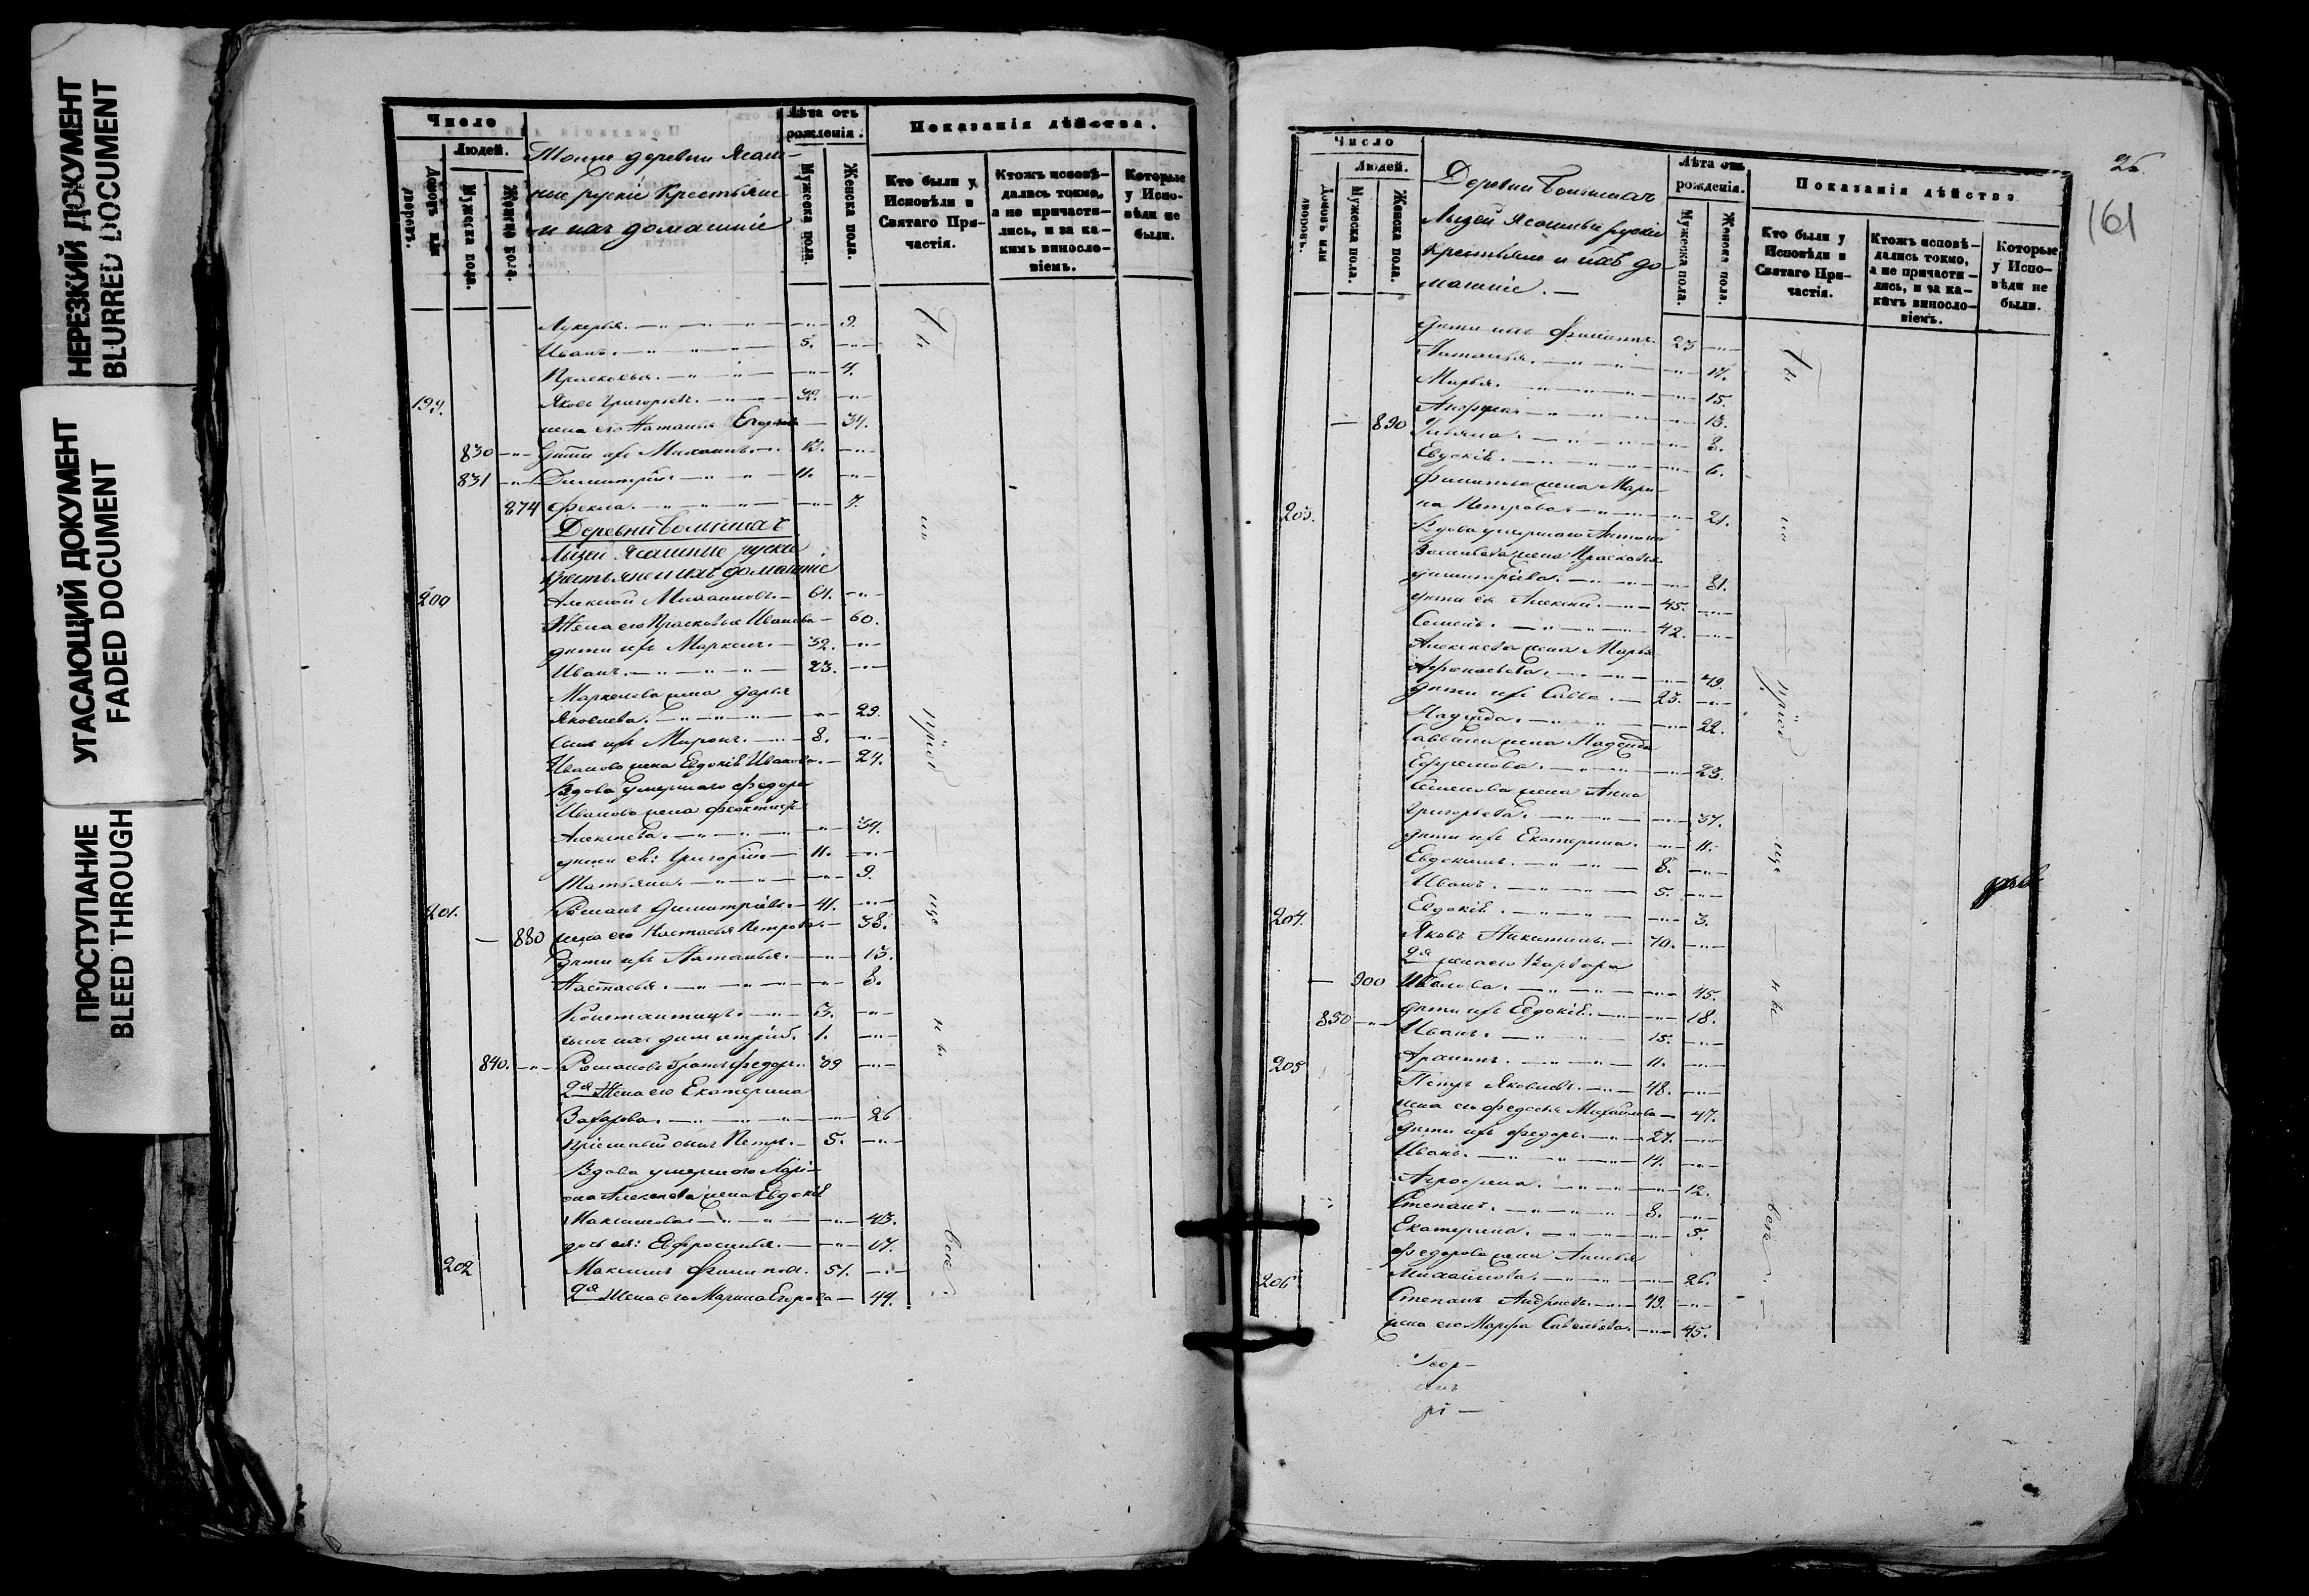 НЕРЕЗКИЙ ДОКУМЕНТ
BLURRED DOCUMENT
УГАСАЮЩИЙ ДОКУМЕНТ
FADED DOCUMENT
ПРОСТУПАНИЕ
BLEED THROUGH
Число
Людей.
Домовъ или дворовъ.
Мужеска пола.
Женска пола.
Тоиже деревни Ясаш-
ные рускіе Крестьяне
и ихъ домашніе
Лѣта отъ рожденія.
Мужеска пола.
Женска пола.
Показанія дѣйства.
Кто были у Исповѣди и Святаго При-
частія.
Ктожъ исповѣ-
дались токмо, а не причасти-
лись, и за ка-
кимъ винсло-
віемъ.
Которые у Испо-
вѣди не были.
Лукерья. 9.
Иванъ. 5.
Прасковья. 4.
199. Яковъ Григорьевъ. 39.
жена его Наталья Егорова 34.
830 Дѣти ихъ Михаилъ. 13.
831 Димитрій. 11.
874 Фекла. 7.
Деревни
Ясашные рускіе
Крестьяне и ихъ домашніе
200 Алексѣй Михаиловъ. 61.
Жена его Прасковья Иванова 60.
дѣти ихъ Маркелъ. 32.
Иванъ. 23.
Маркелова жена Дарья
Яковлева. 29.
сынъ ихъ Миронъ. 8.
Иванова жена Евдокія Иванова. 24.
Вдова умершаго Федора
Иванова жена
Алексѣева. 34.
дѣти ея: Григорій. 11.
Татьяна. 9.
201. Романъ Димитріевъ. 41.
880 жена его Настасья Петрова. 38.
Дѣти ихъ Наталья. 13.
Настасья. 8.
Константинъ. 3.
1.
840. Романовъ братъ Федоръ. 39
2я Жена его Екатерина
Захарова. 26
пріемный сынъ Петръ. 5.
Вдова умершаго
Алексѣева жена Евдокія
Максимова 43.
дочь ея: Евфросинья. 17.
202 Максимъ Филиповъ. 51.
2я Жена его Марина Егорова 44.
были
у
исповѣди
26.
161
Число
Людей.
Домовъ или дворовъ.
Мужеска пола.
Женска пола.
Деревни
Ясашные рускіе
Крестьяне и ихъ до
машніе.
Лѣта отъ рожденія.
Мужеска пола.
Женска пола.
Показанія дѣйства
Кто были у Исповѣди и Святаго При-
частія.
Ктожъ исповѣ-
дались токмо, а не причасти-
лись, и за ка-
кимъ винсло-
віемъ.
Которые у Испо-
вѣди не были.
дѣти ихъ Филипъ. 23
Наталья. 17.
Марья. 15.
13.
890 Ульяна. 8.
Евдокія. 6.
Филипова жена Мари-
на Петрова 21.
203. Вдова умершаго Антона
Васильева жена Прасковья
Димитріева. 81.
дѣти ея Алексѣй. 45.
Семенъ. 42.
Алексѣева жена Марья
Афонасьева. 49.
дѣти ихъ Савва. 23.
Надежда. 22.
Саввина жена Надежда
Ефремова. 23.
Семенова жена Анна
Григорьева. 37.
дѣти ихъ Екатерина. 11.
Евдокимъ. 8.
Иванъ. 5.
Евдокія. 3.
204. Яковъ Никитинъ. 70.
2я жена его Варвара
900 Иванова. 45.
дѣти ихъ Евдокія. 18.
850 Иванъ. 15.
Архипъ. 11.
205 Петръ Яковлевъ. 48.
жена его Федосья Михайлова 47.
Дѣти ихъ Федоръ. 27.
Иванъ. 14.
Агрофена. 12.
Степанъ. 8.
Екатерина. 5.
Федорова жена Анисья
Михайлова. 26.
206. Степанъ Андреевъ. 49.
жена его Марфа Савельева. 45.